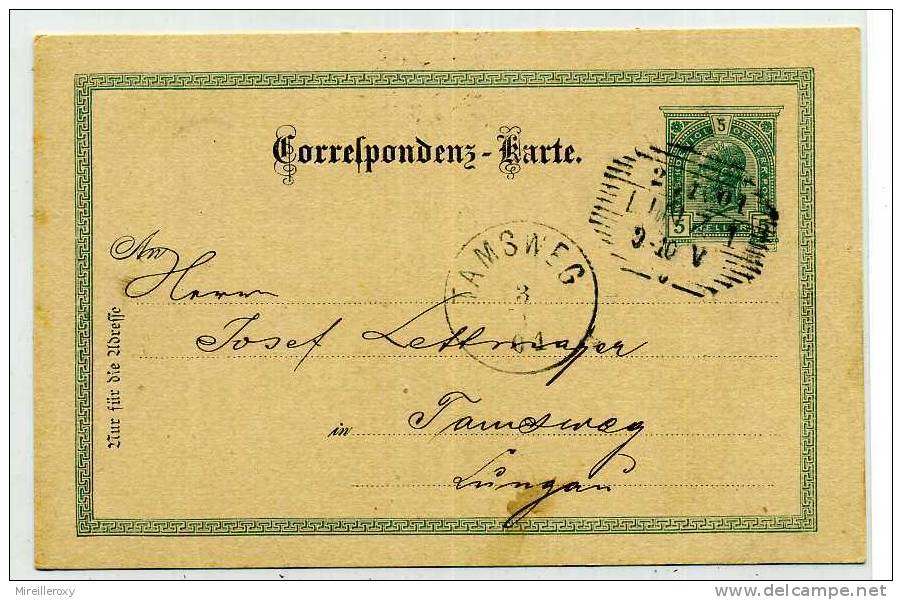 Correspondenz-Karte.
5
5 HELLER 5
9-10 V
TAMSWEG
3
04
An
Herrn
Josef Lettmayer
in Tamsweg
Lungau
Nur für die Adresse
Mireilleroxy
delcampe.net